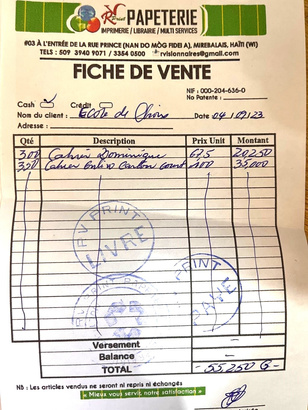 RV Print PAPETERIE
IMPRIMERIE / LIBRAIRIE / MULTI SERVICES
#03 À L'ENTRÉE DE LA RUE PRINCE (NAN DO MÒG FIDEI A), MIREBALAIS, HAÏTI (WI)
TELS : 509 3940 9071 / 3354 0500 rvisionnaires@gmail.com
FICHE DE VENTE
NIF : 000-204-636-0
No Patente :
Cash Crédit
Nom du client : Ecole de Date 04/09/23
Adresse :
Qté Description Prix Unit Montant
300 Cahier Dominique 67,5 20250
350 Cahier Carton 100 35,000
RV PRINT
LIVRE
RV PRINT
PAYE
Versement –
Balance –
TOTAL - 55,250 G -
NB : Les articles vendus ne seront ni repris ni échangés
« Mieux vous servir, notre satisfaction »